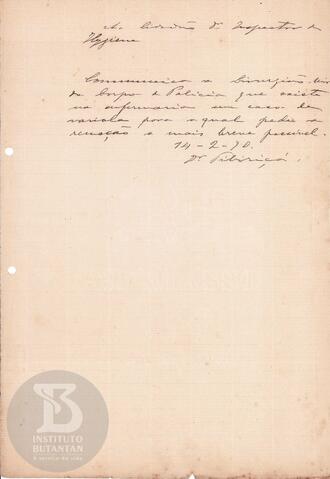 Ao Cidadão Dr Inspector de
Hygiene
Communica o Cirurgião
do Corpo de Policia que existe
na enfermaria um caso de
variola para o qual pede a
remoção o mais breve possivel.
14-2-90.
Dr Pitiriçá.
INSTITUTO
BUTANTAN
A serviço da vida